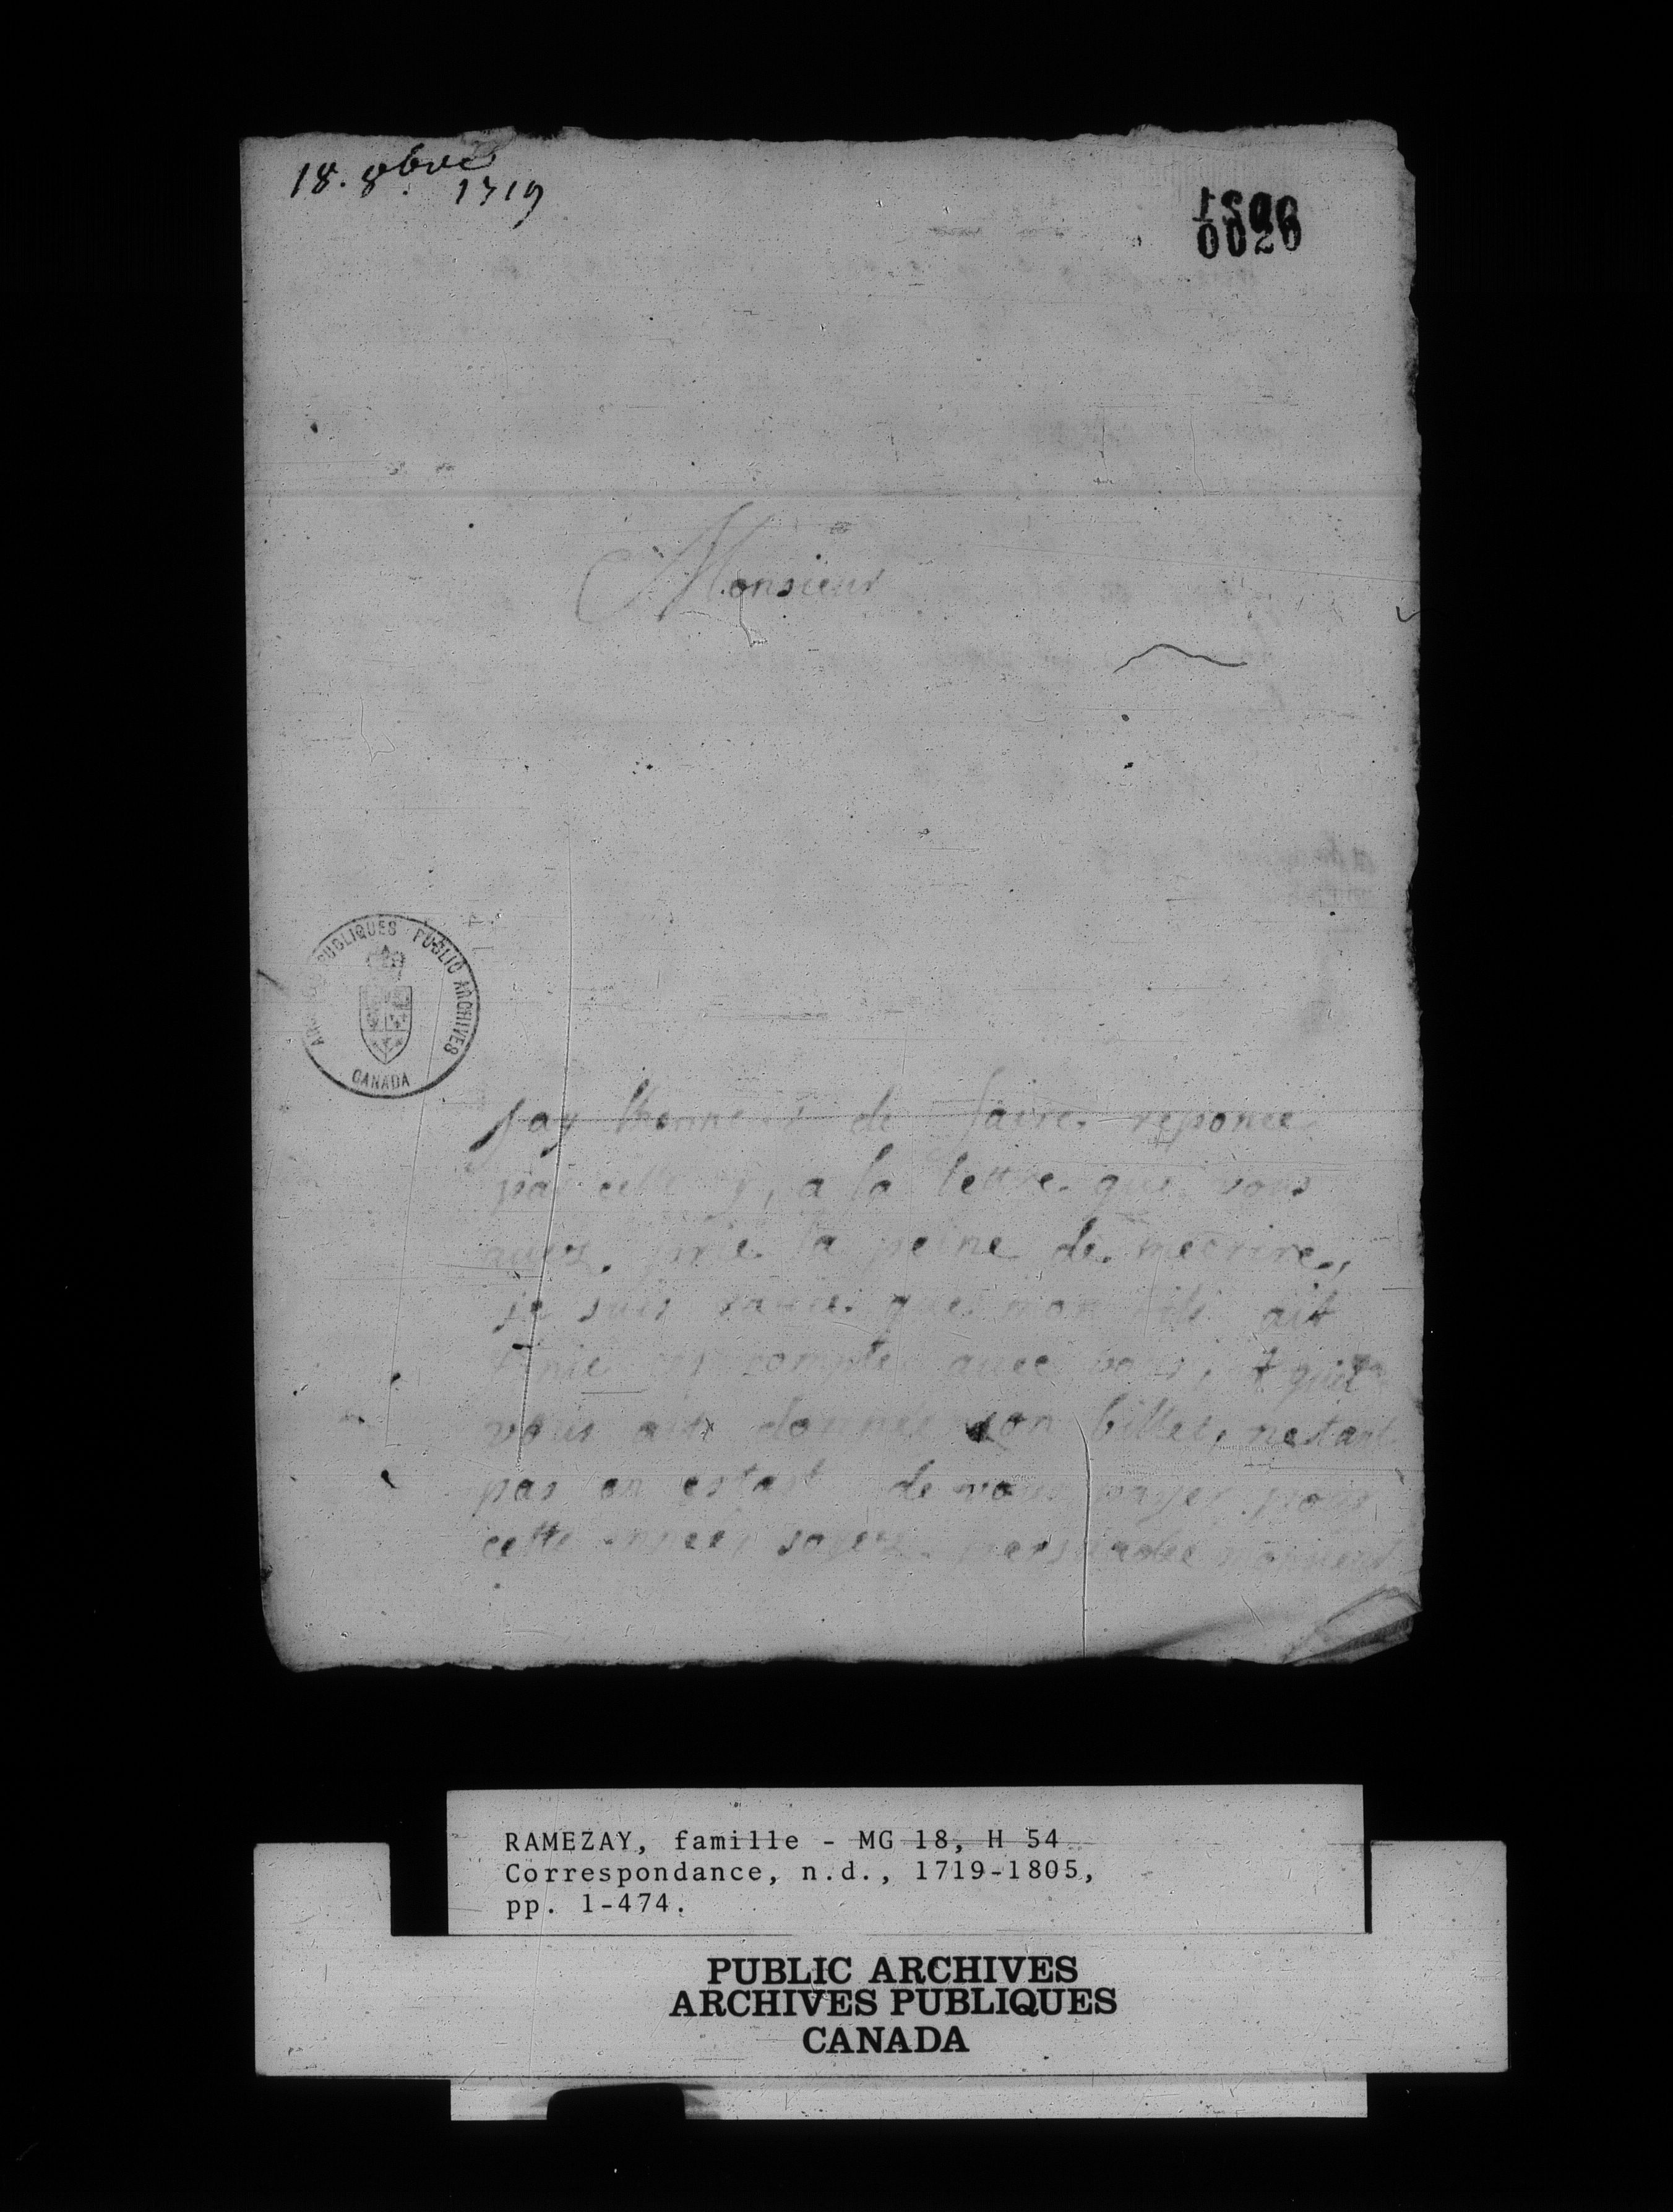 18. 8bre 1719
Monsieur
ARCHIVES PUBLIQUES PUBLIC ARCHIVES
CANADA
Jay lhonneur de faire reponce
par celle cy, a la lettre que vous
aues prie la peine de mecrire,
je suis que mon fils ait
compte auec vous, & quil
vous ait donnée son billet, nestant
pas en estat de vous payer pour
cette année, soyez persuadée
RAMEZAY, famille - MG 18, H 54
Correspondance, n.d., 1719-1805,
pp. 1-474.
PUBLIC ARCHIVES
ARCHIVES PUBLIQUES
CANADA